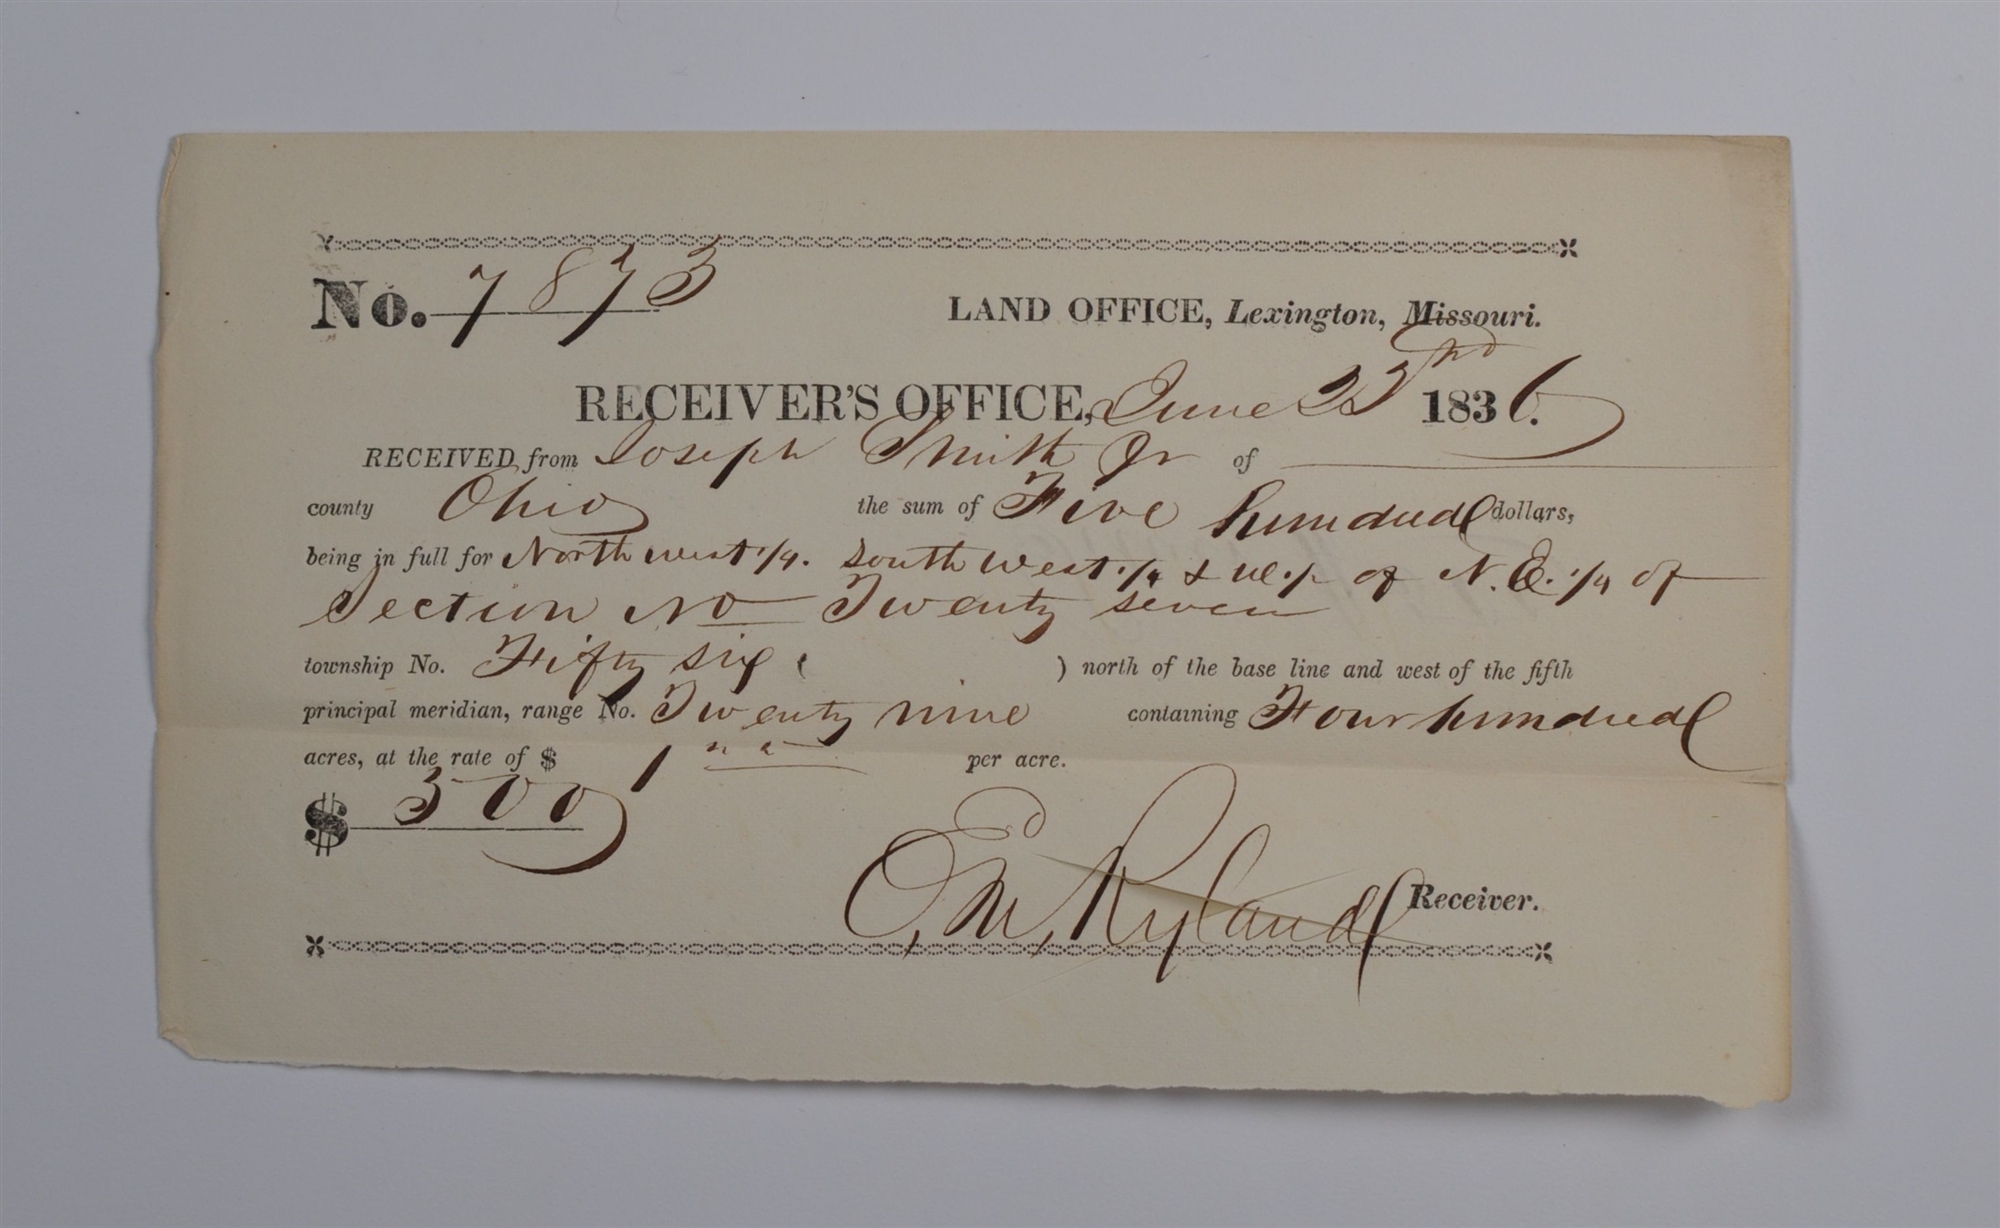 No. 7873
LAND OFFICE, Lexington, Missouri.
RECEIVER'S OFFICE, June 22nd 1836.
RECEIVED from Joseph Smith Jr of
county Ohio the sum of Five hundred dollars,
being in full for North west 1/4. South west 1/4 & W. 1/2 of N. E. 1/4 of
Section No Twenty seven
township No. Fifty six ( ) north of the base line and west of the fifth
principal meridian, range No. Twenty nine containing Four hundred
acres, at the rate of $ 1 per acre.
$ 500
E. M. Ryland Receiver.